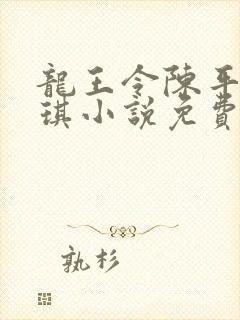 龍王令陳平
琪小說免費
孰杉